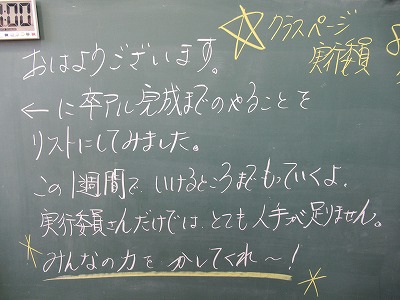 :00
☆クラスページ
実行委員
おはようございます。
←に卒アル完成までのやることを
リストにしてみました。
この1週間で、いけるところまでもっていくよ。
実行委員さんだけでは、とても人手が足りません。
みんなの力を かしてくれ〜!